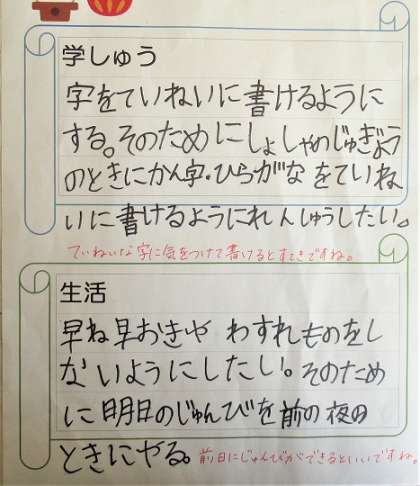 学しゅう
字をていねいに書けるように
する。そのためにしょしゃのじゅぎょう
のときにかん字・ひらがなをていね
いに書けるようにれんしゅうしたい。
ていねいな字に気をつけて書けるとすてきですね。
生活
早ね早おきや わすれものをし
ないようにしたい。そのため
に明日のじゅんびを前の夜の
ときにやる。
前日にじゅんびができるといいですね。